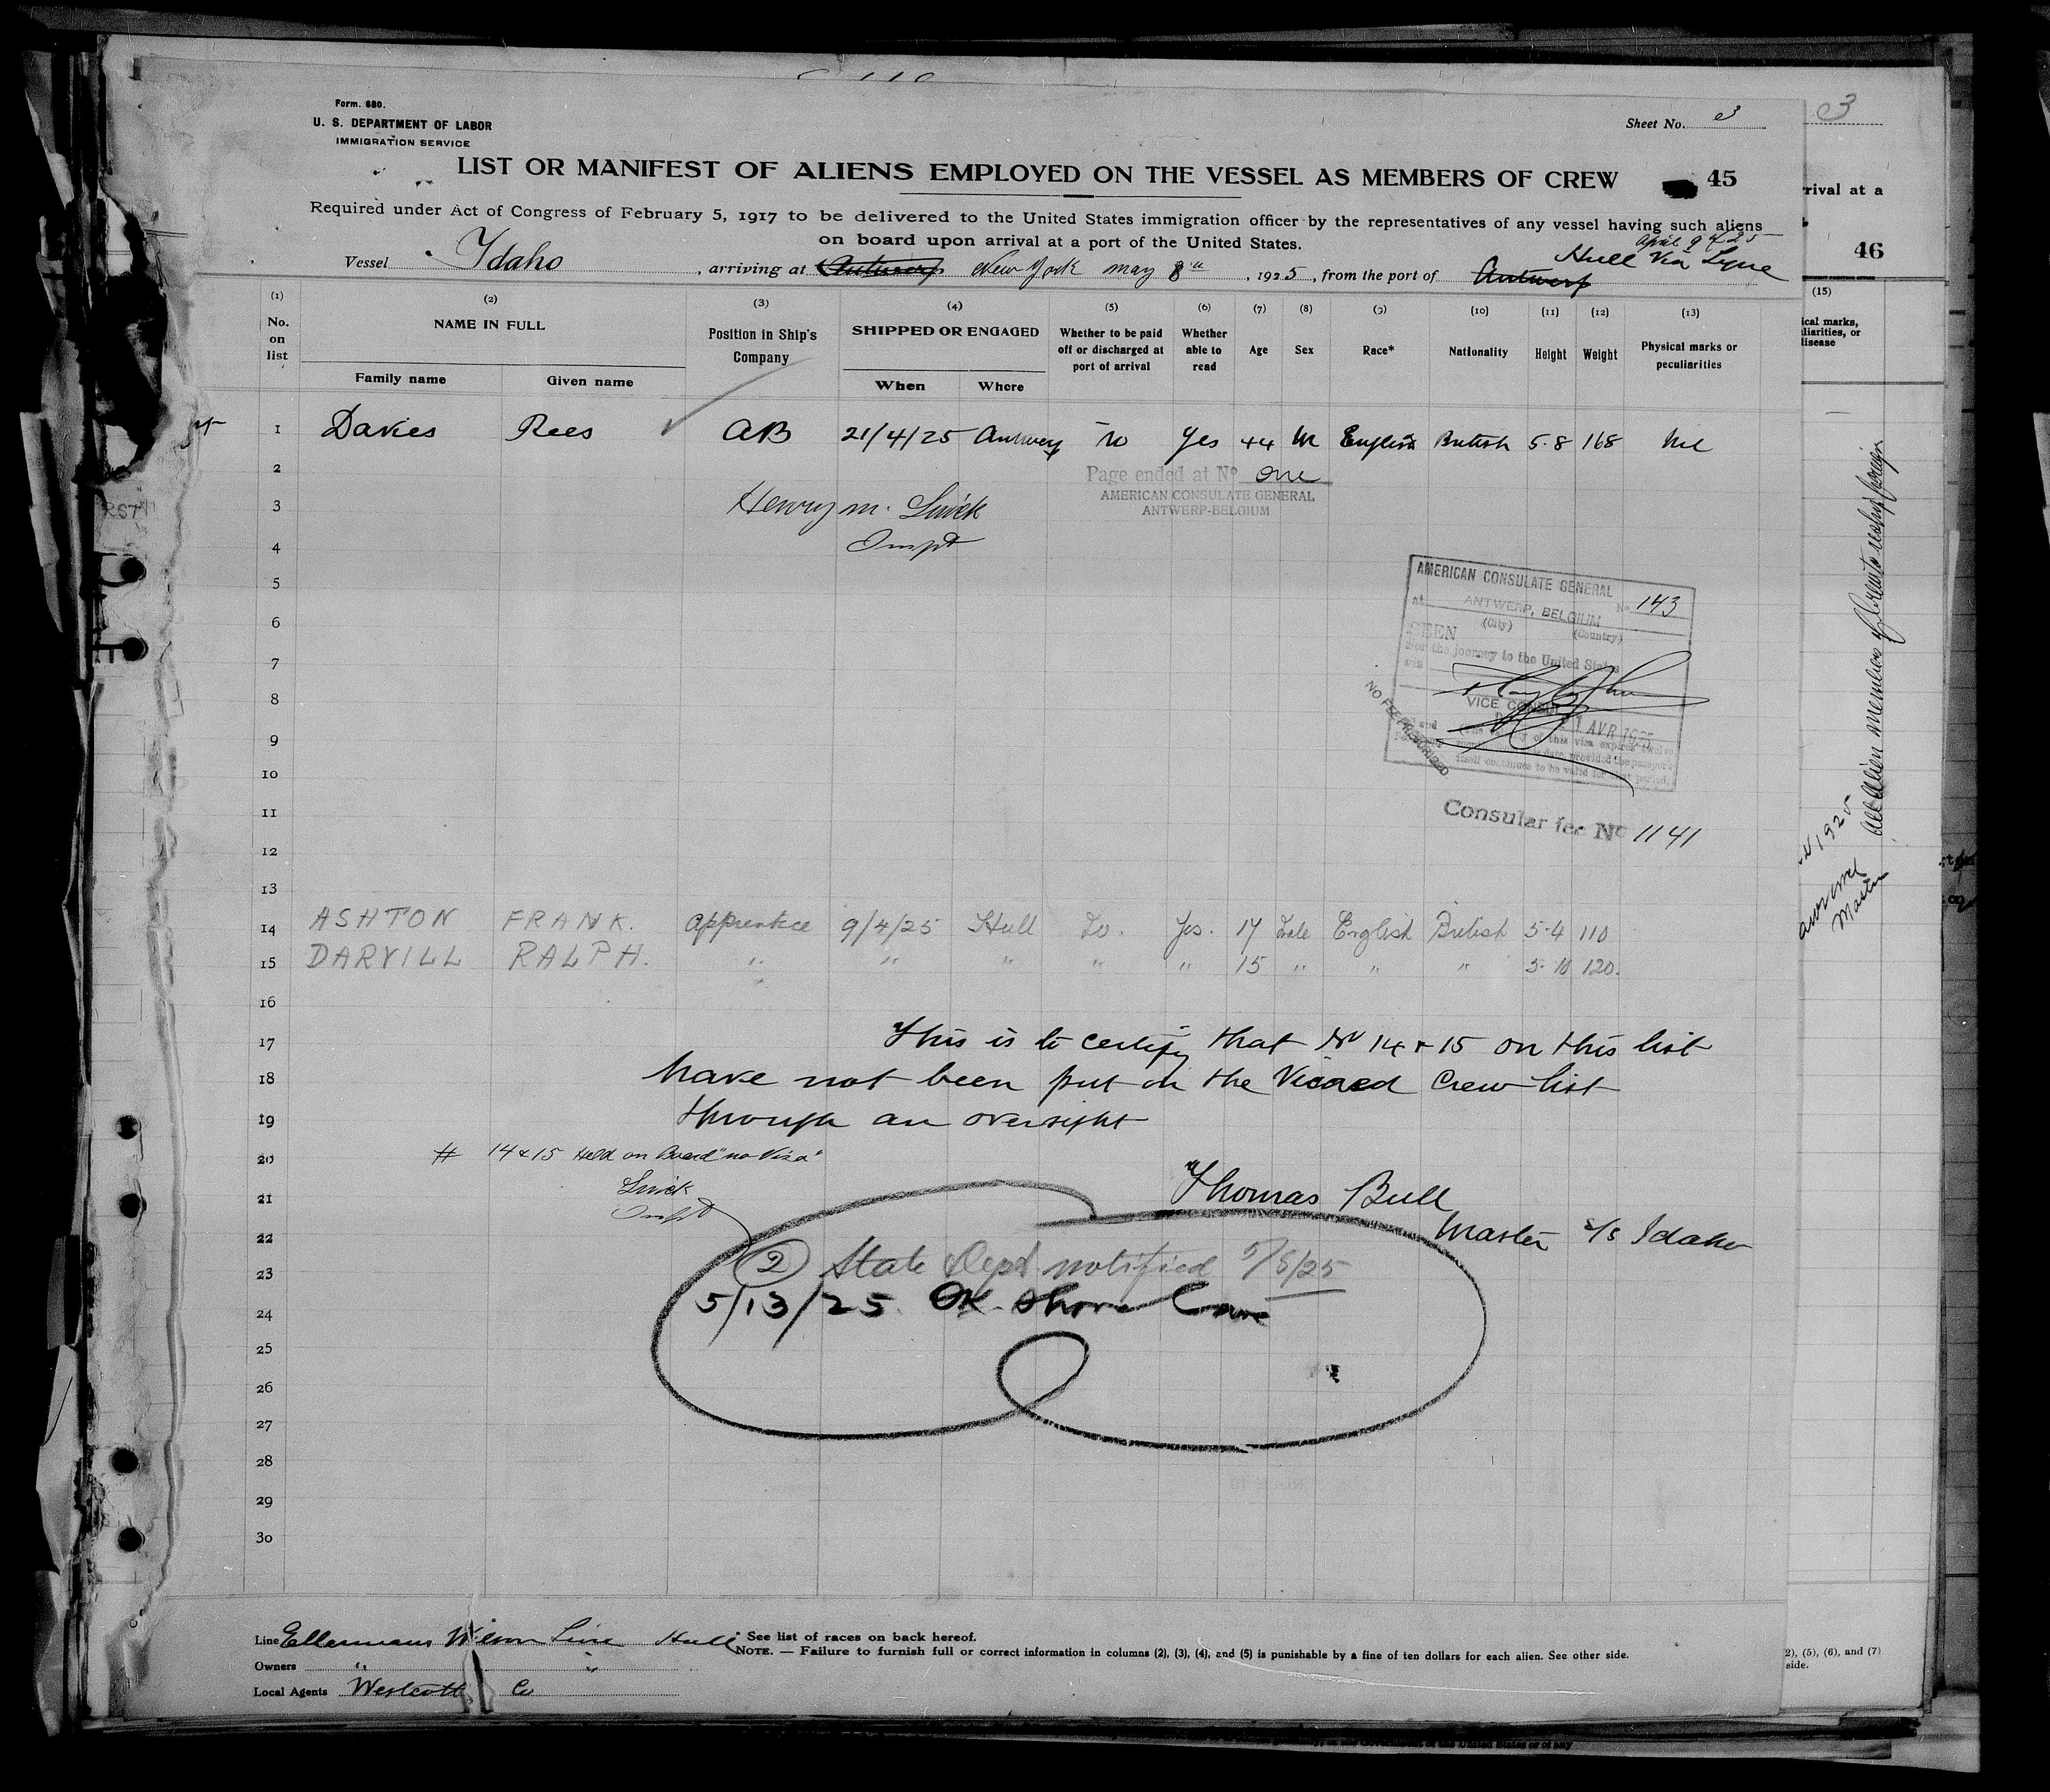 Form. 680.
U. S. DEPARTMENT OF LABOR
IMMIGRATION SERVICE
Sheet No. 3
3
LIST OR MANIFEST OF ALIENS EMPLOYED ON THE VESSEL AS MEMBERS OF CREW
45
Required under Act of Congress of February 5, 1917 to be delivered to the United States immigration officer by the representatives of any vessel having such aliens
on board upon arrival at a port of the United States.
rival at a
46
April 9th 25
Vessel Idaho, arriving at Antwerp New York may 8th, 1925, from the port of Antwerp Hull Via
(1) (2) (3) (4) (5) (6) (7) (8) (9) (10) (11) (12) (13) (15)
No. on list
NAME IN FULL
Family name Given name
Position in Ship's Company
SHIPPED OR ENGAGED
When Where
Whether to be paid off or discharged at port of arrival
Whether able to read
Age Sex Race* Nationality Height Weight
Physical marks or peculiarities
ical marks, liarities, or disease
1 Davies Rees AB 21/4/25 Antwerp No Yes 44 M English British 5.8 168 Nil
2
Page ended at No one
AMERICAN CONSULATE GENERAL
ANTWERP-BELGIUM
3 Henry M.
4 Inspt
5
AMERICAN CONSULATE GENERAL
at ANTWERP, BELGIUM No 143
(City) (Country)
6
SEEN
For the journey to the United States
via
7
8
VICE CONSUL
AVR 1925
NO FEE PRESCRIBED
9
(The validity of this visa expires twelve months from this date, provided the passport itself continues to be valid for that period.
10
11
Consular fee No 1141
12
13
14 ASHTON FRANK. Apprentice 9/4/25 Hull Yes. 17 Male English British 5-4 110
15 DARVILL RALPH. " " " " " 15 " " " 5-10 120.
16
17 This is to certify that No 14 & 15 on this list
18 have not been put on the Visaed Crew list
19 through an oversight
20 # 14 & 15 Held on Board "no Visa"
21 Inspt
Thomas Bull
22 Master s/s Idaho
23 (2) State Dept notified 5/8/25
24 5/13/25 OK Shore Leave
25
26
27
28
29
30
all alien members of crew to reship foreign
Master
Line Ellermans Wilson Line Hull
* See list of races on back hereof.
NOTE. — Failure to furnish full or correct information in columns (2), (3), (4), and (5) is punishable by a fine of ten dollars for each alien. See other side.
Owners " "
Local Agents Westcott Co
2), (5), (6), and (7)
side.